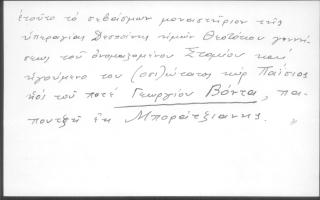 ἐτοῦτο τὸ σεβάσμιον μοναστήριον τῆς
ὑπεραγίας Δεσποίνης ἡμῶν Θεοτόκου γεννή-
σεως τοῦ ὀνομαζομένου Στομίου καὶ
ἡγούμενο του (ὁσι)ώτατος κὺρ Παΐσιος
υἱὸς τοῦ ποτὲ Γεωργίου Βόντα, πα-
πουτζῆ ἐκ Μποράτζιανης.